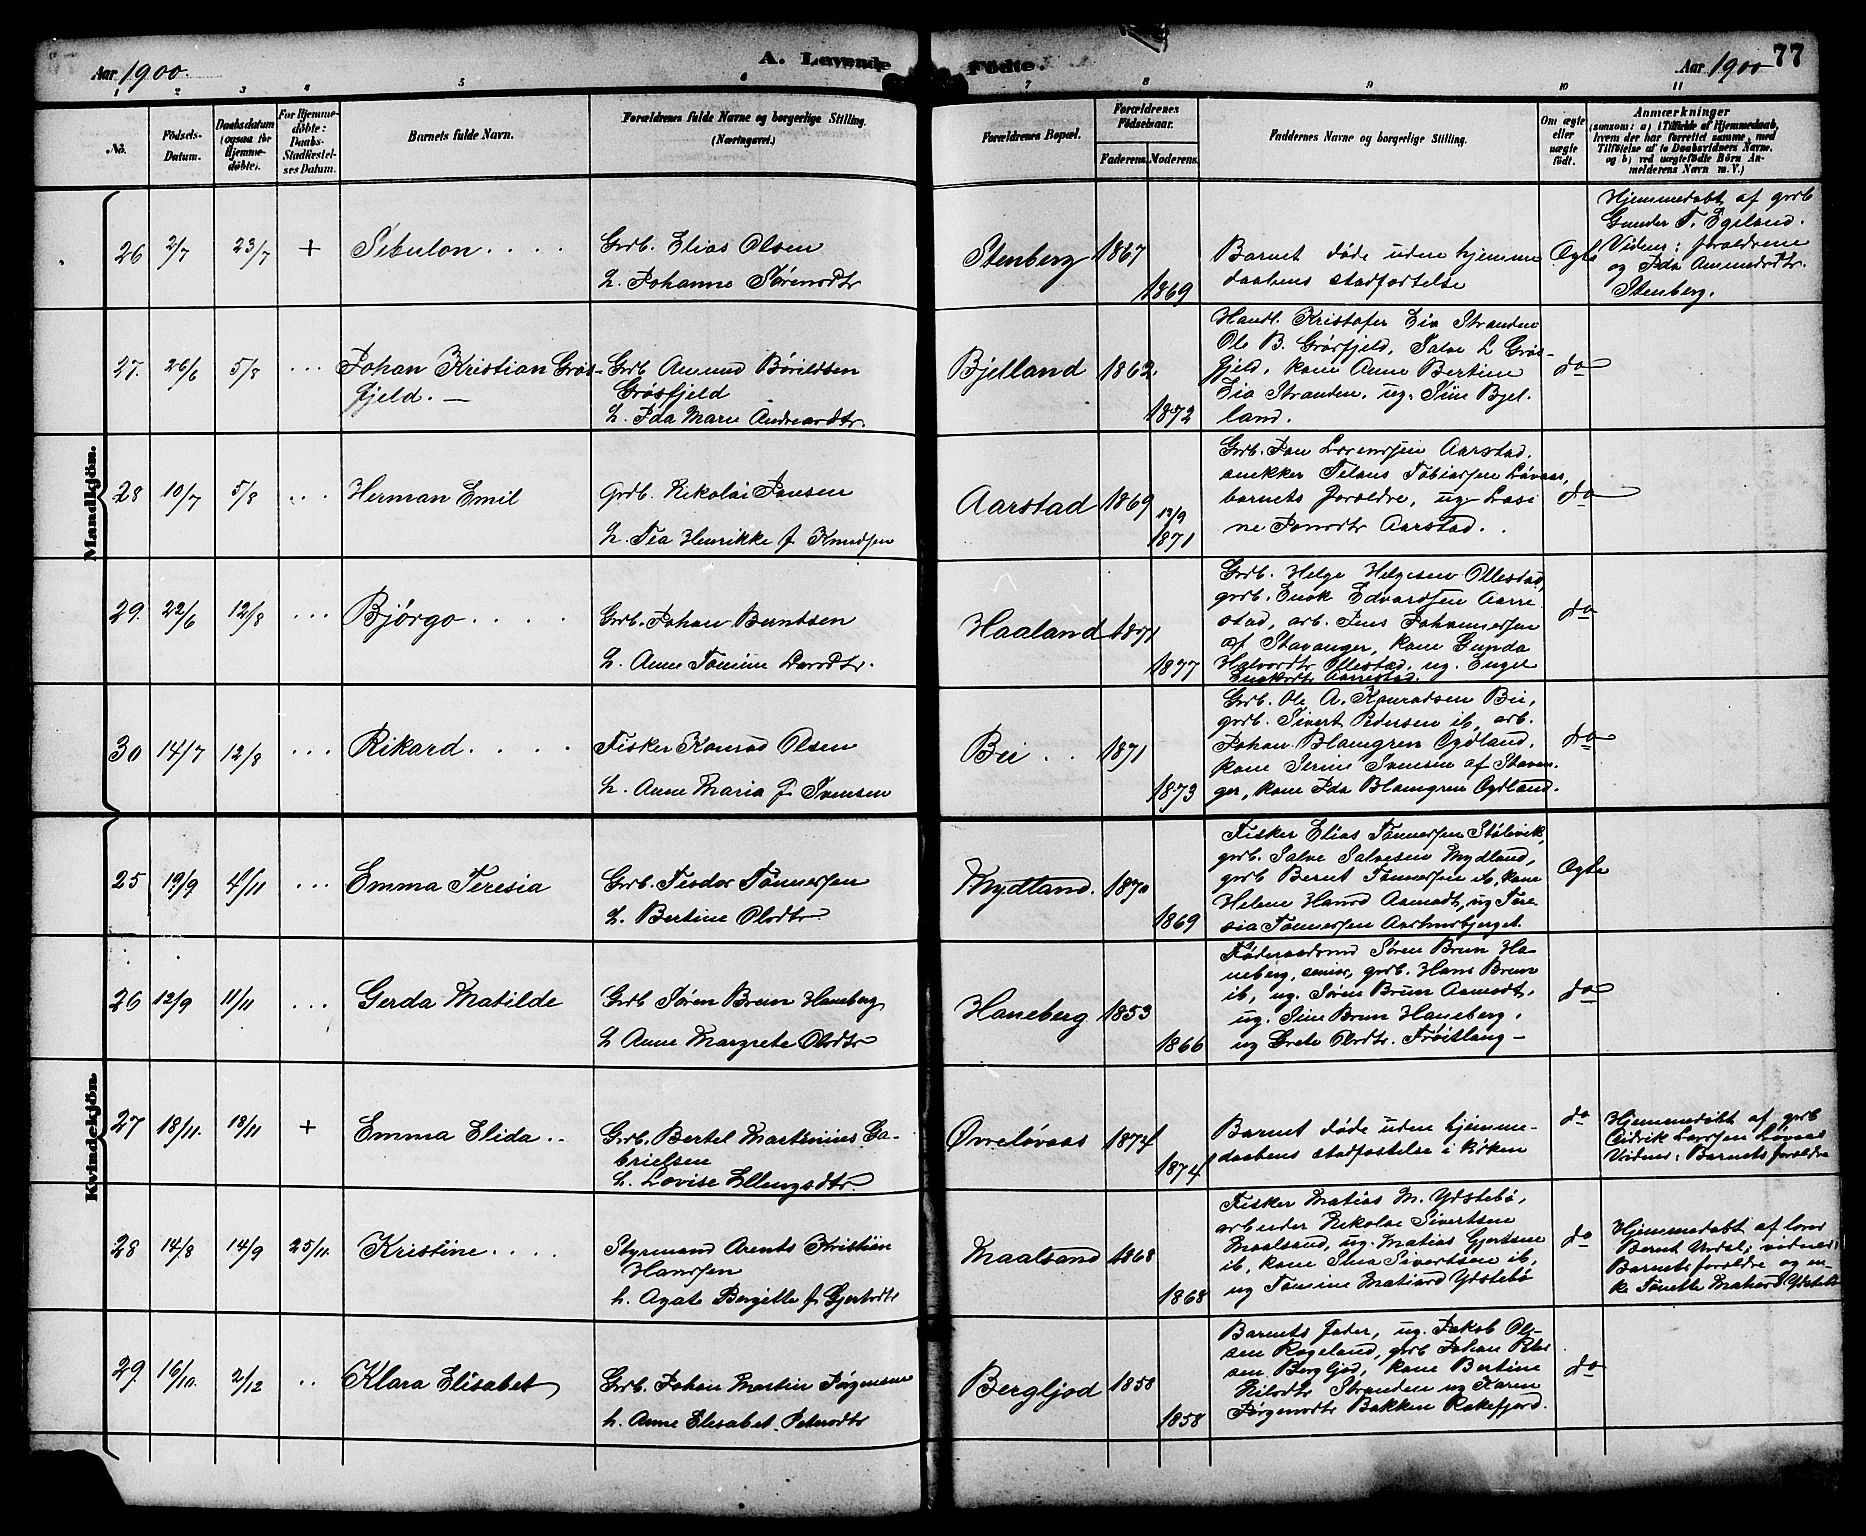 Aar 1900. A. Levende Födte. Aar 1900 77
1 2 3 4 5 6 7 8 9 10 11
No. Födsels-Datum. Daabsdatum (ogsaa for Hjemme-döbte). For Hjemme-döbte: Daabs-Stadfæstel-ses Datum. Barnets fulde Navn. Forældrenes fulde Navne og borgerlige Stilling. (Næringsvei.) Forældrenes Bopæl. Forældrenes Födselsaar. Faderens. Moderens. Faddernes Navne og borgerlige Stilling. Om ægte eller uægte födt. Anmærkninger
(saasom: a) i Tilfælde af Hjemmedaab,
hvem der har forrettet samme, med
Tilföielse af to Daabsvidners Navne,
og b) ved uægtefödte Börn An-
melderens Navn m. V.)
Mandkjön.
26 2/7 23/7 + Sebulon
Grdb. Elias Olsen
h. Johanne Sørensdtr
Stenberg 1867
1869
Barnet døde uden hjemme
daabens stadfæstelse
Ægte
Hjemmedøbt af grdb
Gunder T. Egeland.
Vidner: forældrene
og Ida Amundsdtr.
Stenberg.
27. 26/6 5/8 Johan Kristian Grøs-
fjeld. —
Grb Amund Bårildsen
Grøsfjeld
h. Ida Marie Andreasdtr.
Bjelland 1862.
1872
Handl. Kristofer Eia Stranden
Ole B. Grøsfjeld, Salve L Grøs-
fjeld, kone Anne Bertine
Eia Stranden, ug. Sine Bjel-
land.
do
28 10/7 5/8 Herman Emil
Grdb. Nikolai Jansen
h. Tea Henrikke f Knudsen
Aarstad 1869 12/9
1871
Grb. Jan Lorentsen Aarstad.
snekker Tobiassen Løvaas,
barnets forældre, ug Lasi
ne Jansdtr Aarstad.
do
29. 22/6 12/8 Bjørgo
Grb. Johan Berntsen
h. Anne Tomine Larsdtr.
Haaland 1871
1877
Grdb. Helge Helgesen Ollestad,
grdb. Enok Edvardsen Aarre
stad, arb. Jens Johannessen
af Stavanger, kone Gunda
Halvordtr Ollestad, ug. Engel
Enoksdtr Aarrestad.
do
30 14/7 12/8 Rikard
Fisker Konrad Olsen
h. Anne Maria f. Svensen
Bu 1871
1873
Grb. Ole A. Konradsen Bu,
grdb. Sivert Pedersen ib, arb.
Johan Blomgren Eydland,
kone Serine Svensen af Stavan-
ger, kone Ida Blomgren Eydland.
do
Kvindekjön.
25 19/9 4/11 Emma Teresia
Grb. Teodor Tønnessen
h. Bertine Olsdtr
Mydland. 1870
1869
Fisker Elias Tønnessen Stølsvik,
grb. Salve Salvesen Mydland,
grb Bernt Tønnessen ib, kone
Helene Aamodt, ug Tere
sia Tønnessen
Ægte
26 12/9 11/11 Gerda Matilde
Grb Søren Brun Haneberg
h Anne Margrete Olsdtr
Haneberg 1853
1866
Føderaadsmd Søren Brun Ha-
neberg, senior, grb. Hans Brun
ib, ug. Søren Brun Aamodt,
ug. Sine Brun Haneberg,
ug Grete Olsdtr. Frøitlang —
do
27 18/11. 18/11 + Emma Elida
Grb. Bertel Martinius Ga-
brielsen
h. Lovise Ellingsdtr.
Øvreløvaas 1874
1874
Barnet døde uden hjemme-
daabens stadfæstelse i kirken
do
Hjemmedøbt af grb
Larssen Løvaas
Vidner: Barnets forældre
28 14/8 14/9 25/11. Kristine
Styrmand Arents Kristian
Hanssen
h. Agate Bergitte f Gjertsdtr
Maalsand 1868
1868
Fisker Matias M. Ydstebø,
arbeider Nikolai Sivertsen
Maalsand, ug. Matias Gjertsen
ib, kone Sivertsen ib,
ug Tomine Matiasd Ydstebø
do
Hjemmedøbt af lærer
Bernt Urdal; vidner:
Barnets forældre og en-
ke Tonette Matiasd Ydstebø
29. 16/10. 2/12 Klara Elisabet
Grb. Johan Martin Jørgensen
h. Anne Elisabet Petersdtr
Bergljod 1858
1858
Barnets fader, ug. Jakob Ol-
sen Rogeland, grdb Johan Peter
sen Bergljod, kone Bertine
Nilsdtr Stranden ug Karen
Jørgensdtr Bakken Rekefjord.
do